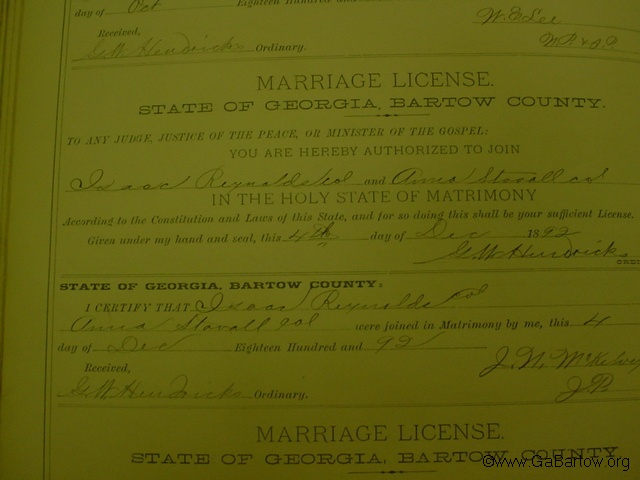 day of Oct Eighteen Hundred and
W. E. Lee
Received,
G.W. Hendricks Ordinary.
MARRIAGE LICENSE.
STATE OF GEORGIA, BARTOW COUNTY.
TO ANY JUDGE, JUSTICE OF THE PEACE, OR MINISTER OF THE GOSPEL:
YOU ARE HEREBY AUTHORIZED TO JOIN
Isaac Reynolds col and Anna Stovall col
IN THE HOLY STATE OF MATRIMONY
According to the Constitution and Laws of this State, and for so doing this shall be your sufficient License.
Given under my hand and seal, this 4th day of Dec 1892
G.W. Hendricks
ORD
STATE OF GEORGIA, BARTOW COUNTY:
I CERTIFY THAT Isaac Reynolds Col
Anna Stovall Col were joined in Matrimony by me, this 4
day of Dec Eighteen Hundred and 92
J. N. McKelvey
Received,
J.P.
G.W. Hendricks Ordinary.
MARRIAGE LICENSE.
STATE OF GEORGIA, BARTOW COUNTY
©www.GaBartow.org